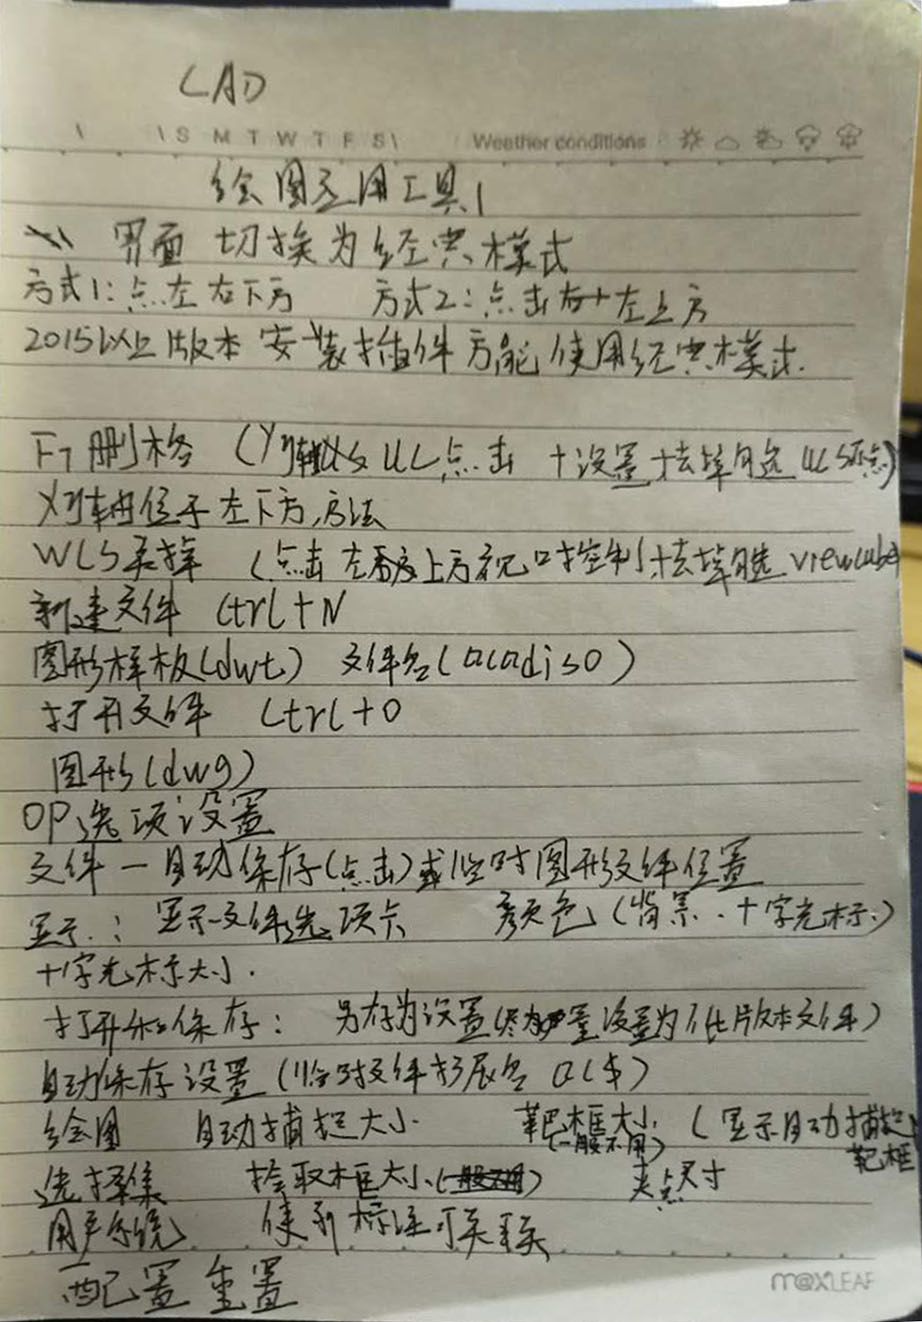 CAD
\ \S M T W T F S\ Weather conditions
绘图应用工具1
界面 切换为经典模式
方式1:点左右下方 方式2:点击左上方
2015以上版本安装插件方能使用经典模式.
F7删格 (Y轴 点击 +设置+去掉勾选UCS原点)
位于左下方,方法
(点击左上方视口控制+去掉勾选viewcube
新建文件 Ctrl+N
图形样板(dwt) 文件名(acadiso)
打开文件 Ctrl+O
图形(dwg)
OP选项设置
文件一自动保存(点击)或临时图形文件位置
显示:显示文件选项卡 颜色(背景.十字光标.)
十字光标大小.
打开和保存: 另存为设置(尽为设置为低版本文件)
自动保存设置(临时文件扩展名 ac$)
绘图 自动捕捉大小. 靶框大小 (显示自动捕捉
(一般不用) 靶框
选择集 拾取框大小 夹点尺寸
用户系统 使
配置重置
m@xLEAF